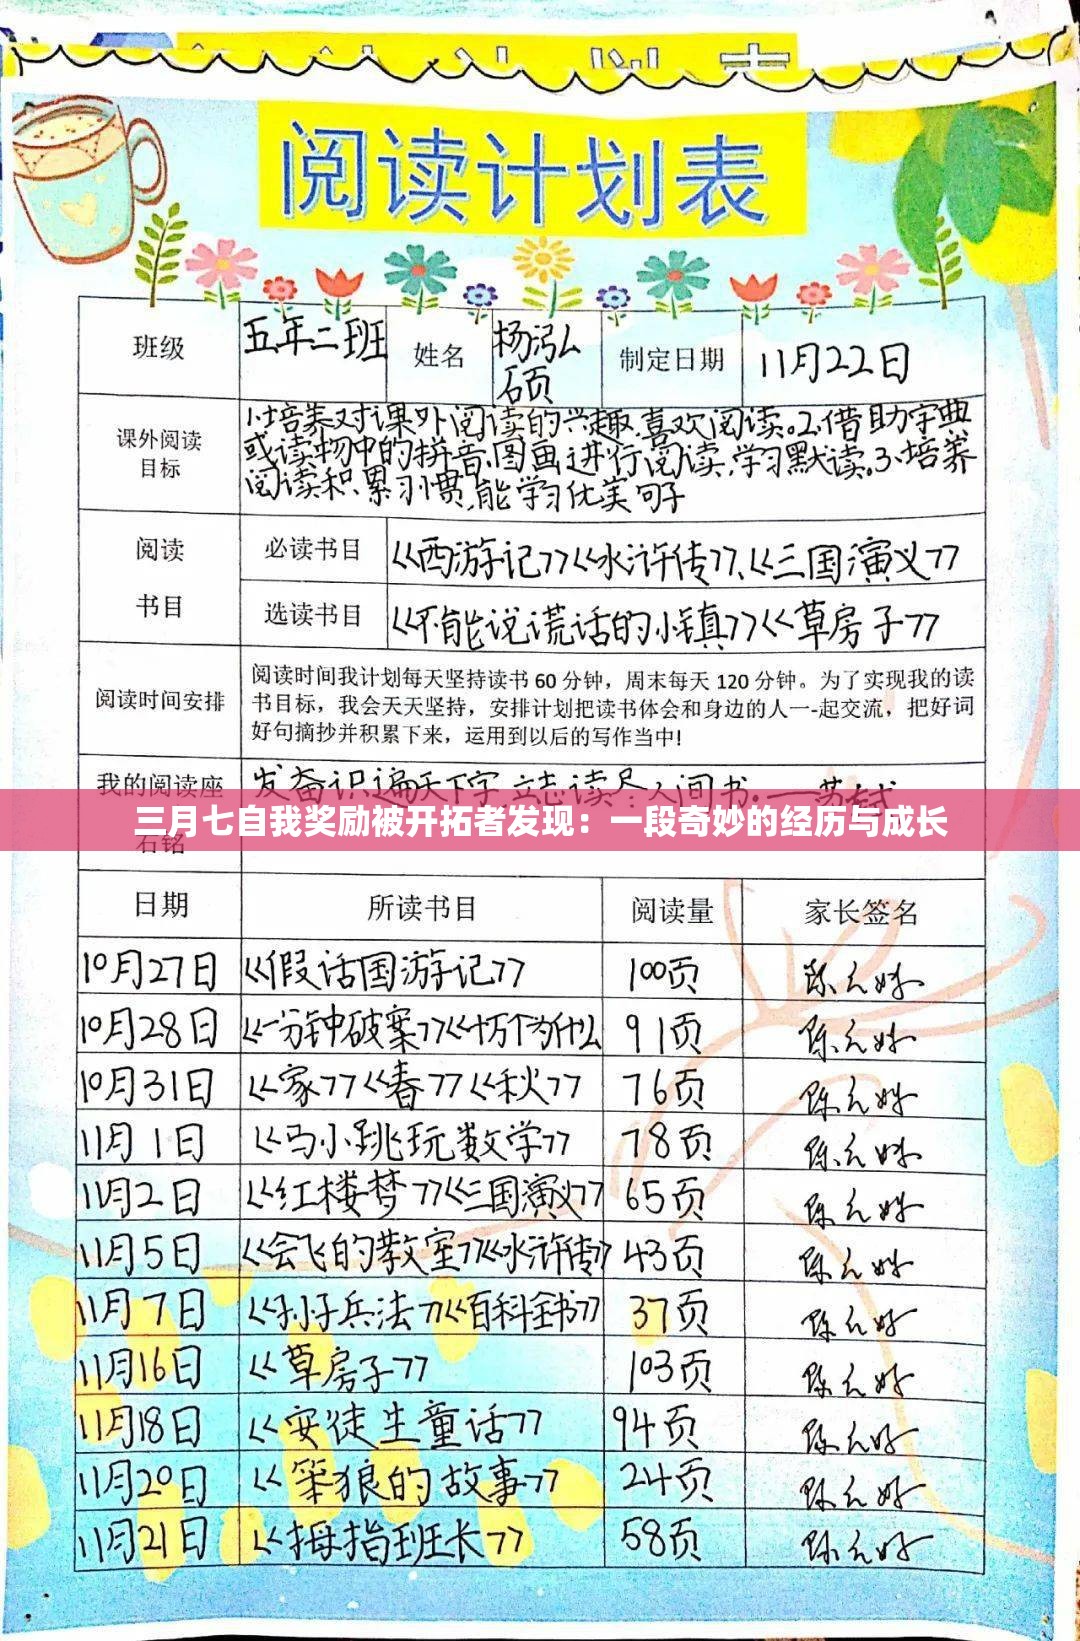 阅读计划表
班级 五年二班 姓名 杨泓硕 制定日期 11月22日
课外阅读目标
1.培养对课外阅读的兴趣,喜欢阅读。2.借助字典
或读物中的拼音、图画进行阅读,学习默读。3、培养
阅读积累习惯,能学习优美句子
阅读书目
必读书目 《西游记》《水浒传》、《三国演义》
选读书目 《不能说谎话的小镇》《草房子》
阅读时间安排
阅读时间我计划每天坚持读书60分钟，周末每天120分钟。为了实现我的读
书目标，我会天天坚持，安排计划把读书体会和身边的人一-起交流，把好词
好句摘抄并积累下来，运用到以后的写作当中!
我的阅读座
石铭
发奋识遍天下字 立志读尽人间书。——苏轼
三月七自我奖励被开拓者发现：一段奇妙的经历与成长
日期 所读书目 阅读量 家长签名
10月27日 《假话国游记》 100页
10月28日 《一分钟破案》《十万个为什么 91页
10月31日 《家》《春》《秋》 76页
11月1日 《马小跳玩数学》 78页
11月2日 《红楼梦》《三国演义》 65页
11月5日 《会飞的教室》《水浒传》 43页
11月7日 《孙子兵法》《百科全书》 37页
11月16日 《草房子》 103页
11月18日 《安徒生童话》 94页
11月20日 《笨狼的故事》 24页
11月21日 《拇指班长》 58页